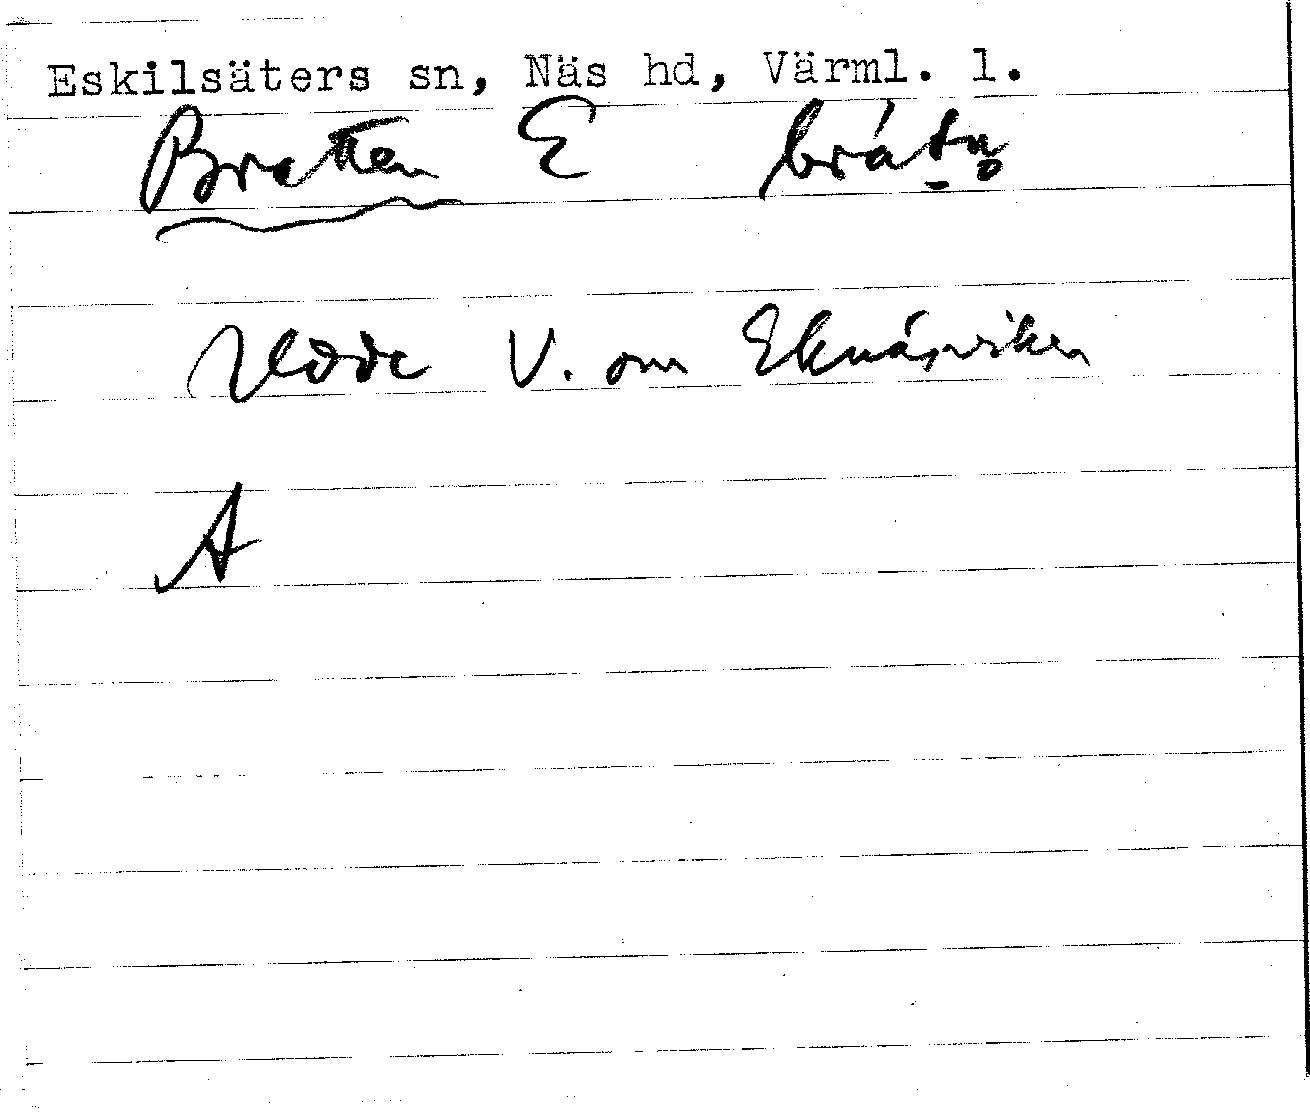 Eskilsäters sn, Näs hd, Värml. l.
Bratten E bràtn̥
Udde V. om Eknäsviken
A